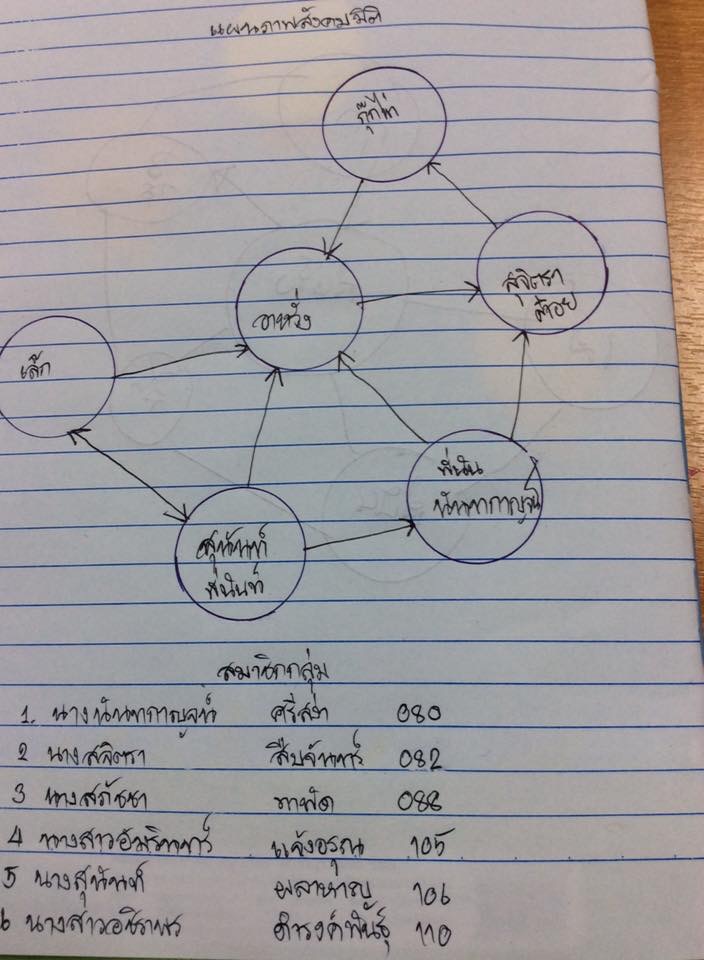 แผนภาพสังคมมิติ
กุ๊กไก่
สุจิตรา
อาหวั่ง
เล็ก
พี่นัน
นันทกาญจน์
สุนันท์
พี่นันท์
สมาชิกกลุ่ม
1. นางนันทกาญจน์ ศรีสง่า 080
2 นางสุจิตรา สืบจันทร์ 082
3 088
4 นางสาวอัมรินทร์ แจ้งอรุณ 105
5 นางสุนันท์ ผลาหาญ 106
6 นางสาวอชิราพร ดำรงค์พันธุ์ 110